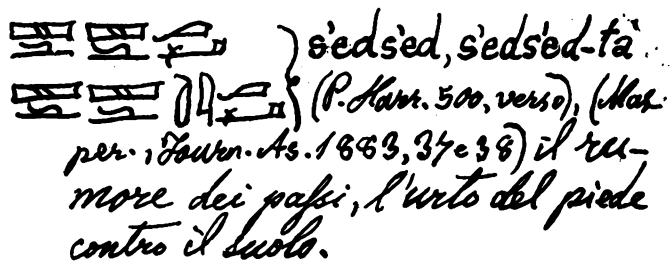 s'eds'ed, s'eds'ed-ta
(P. Harr. 500, verso), (Mas-
per., Journ. As. 1883, 37 e 38) il ru-
more dei passi, l'urto del piede
contro il suolo.